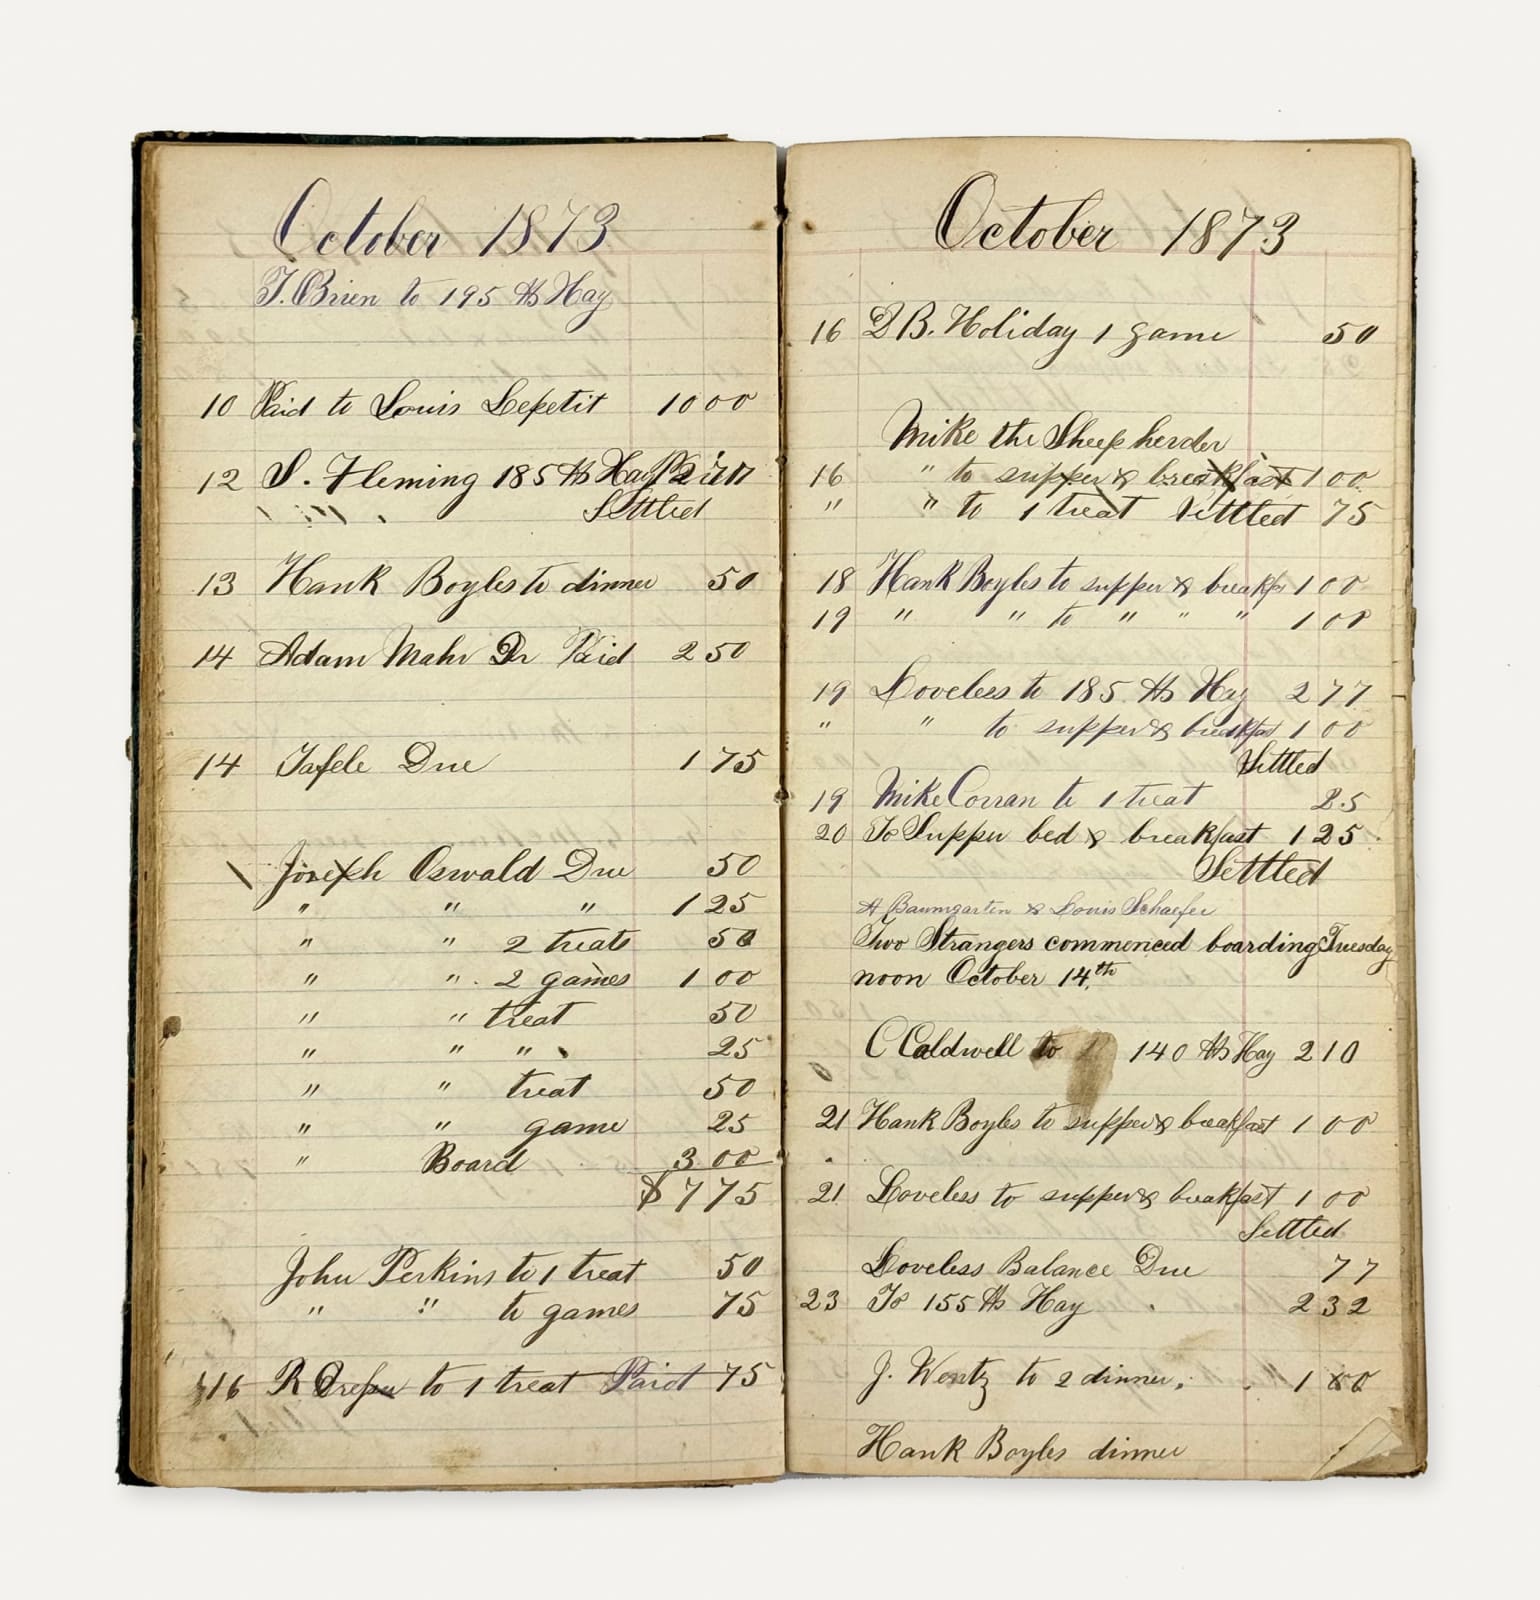 October 1873
T. Brien to 195 lbs Hay
10 Paid to Louis Lepetit 10 00
12 S. Fleming 185 lbs Hay
Settled
13 Hank Boyles to dinner 50
14 Adam Mahr Dr Paid 2 50
14 Tafele Due 1 75
Joseph Oswald Due 50
" " " 1 25
" " 2 treats 50
" " 2 games 1 00
" " treat 50
" " " 25
" " treat 50
" " game 25
" Board 3 00
$ 7 75
John Perkins to 1 treat 50
" " to games 75
16 R to 1 treat Paid 75
October 1873
16 D B. Holiday 1 game 50
Mike the Sheep herder
16 " to supper & breakfast 1 00
" " to 1 treat Settled 75
18 Hank Boyles to supper & breakfas 1 00
19 " " to " " " 1 00
19 Loveless to 185 lbs Hay 2 77
" " to supper & breakfas 1 00
Settled
19 Mike Corran to 1 treat 25
20 To Supper bed & breakfast 1 25
Settled
A Baumgarten & Louis Schaefer
Two Strangers commenced boarding Tuesday
noon October 14th
C Caldwell to 140 lbs Hay 2 10
21 Hank Boyles to supper & breakfast 1 00
21 Loveless to supper & breakfast 1 00
Settled
Loveless Balance Due 77
23 To 155 lbs Hay 2 32
J. Wentz to 2 dinner. 1 00
Hank Boyles dinner